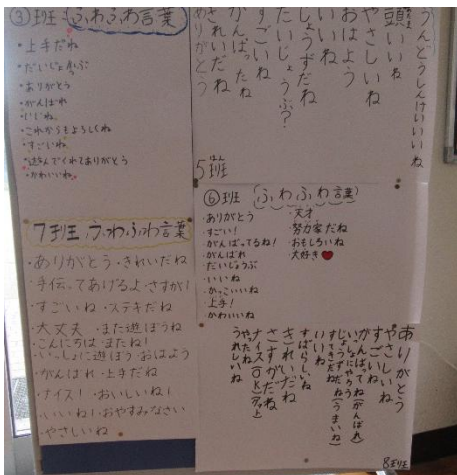 ③班 ふわふわ言葉
・上手だね
・だいじょうぶ
・ありがとう
・がんばれ
・いいね
・これからもよろしくね
・すごいね
・遊んでくれてありがとう
・かわいいね
うんどうしんけいいいね
頭いいね
やさしいね
おはよう
いいね
しょうずだね
だいじょうぶ?
すごいね
がんばったね
きれいだね
ありがとう
5班
⑥班 ふわふわ言葉
・ありがとう
・すごい!
・がんばってるね!
・がんばれ
・だいじょうぶ
・いいね
・かっこいいね
・上手!
・かわいいね
・天才
・努力家だね
・おもしろいね
・大好き
7班 ふわふわ言葉
・ありがとう・きれいだね
・手伝ってあげるよ・さすが!
・すごいね・ステキだね
・大丈夫・また遊ぼうね
・こんにちは・またね!
・いっしょに遊ぼう・おはよう
・がんばれ・上手だね
・ナイス!・おいしいね!
・いいね!・おやすみなさい
・やさしいね
ありがとう
やさしいね
すごいね
がんばってね(がんばれ)
いっしょにやろう
じょうずだね(うまいね)
すてきだね
いいね
すばらしいね
きれいだね
さすがだね
ナイス(OK)(グット)
やったね
うれしいね
8班